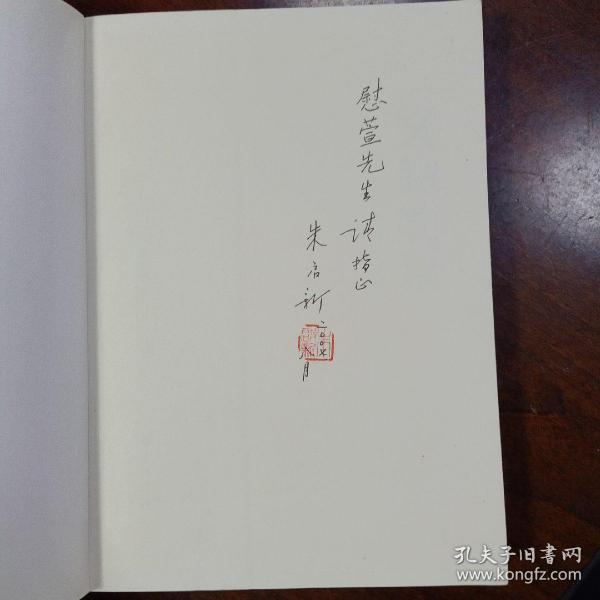 慰萱先生
请指正
朱启新
二〇〇
月
孔夫子旧書网
www.kongfz.com